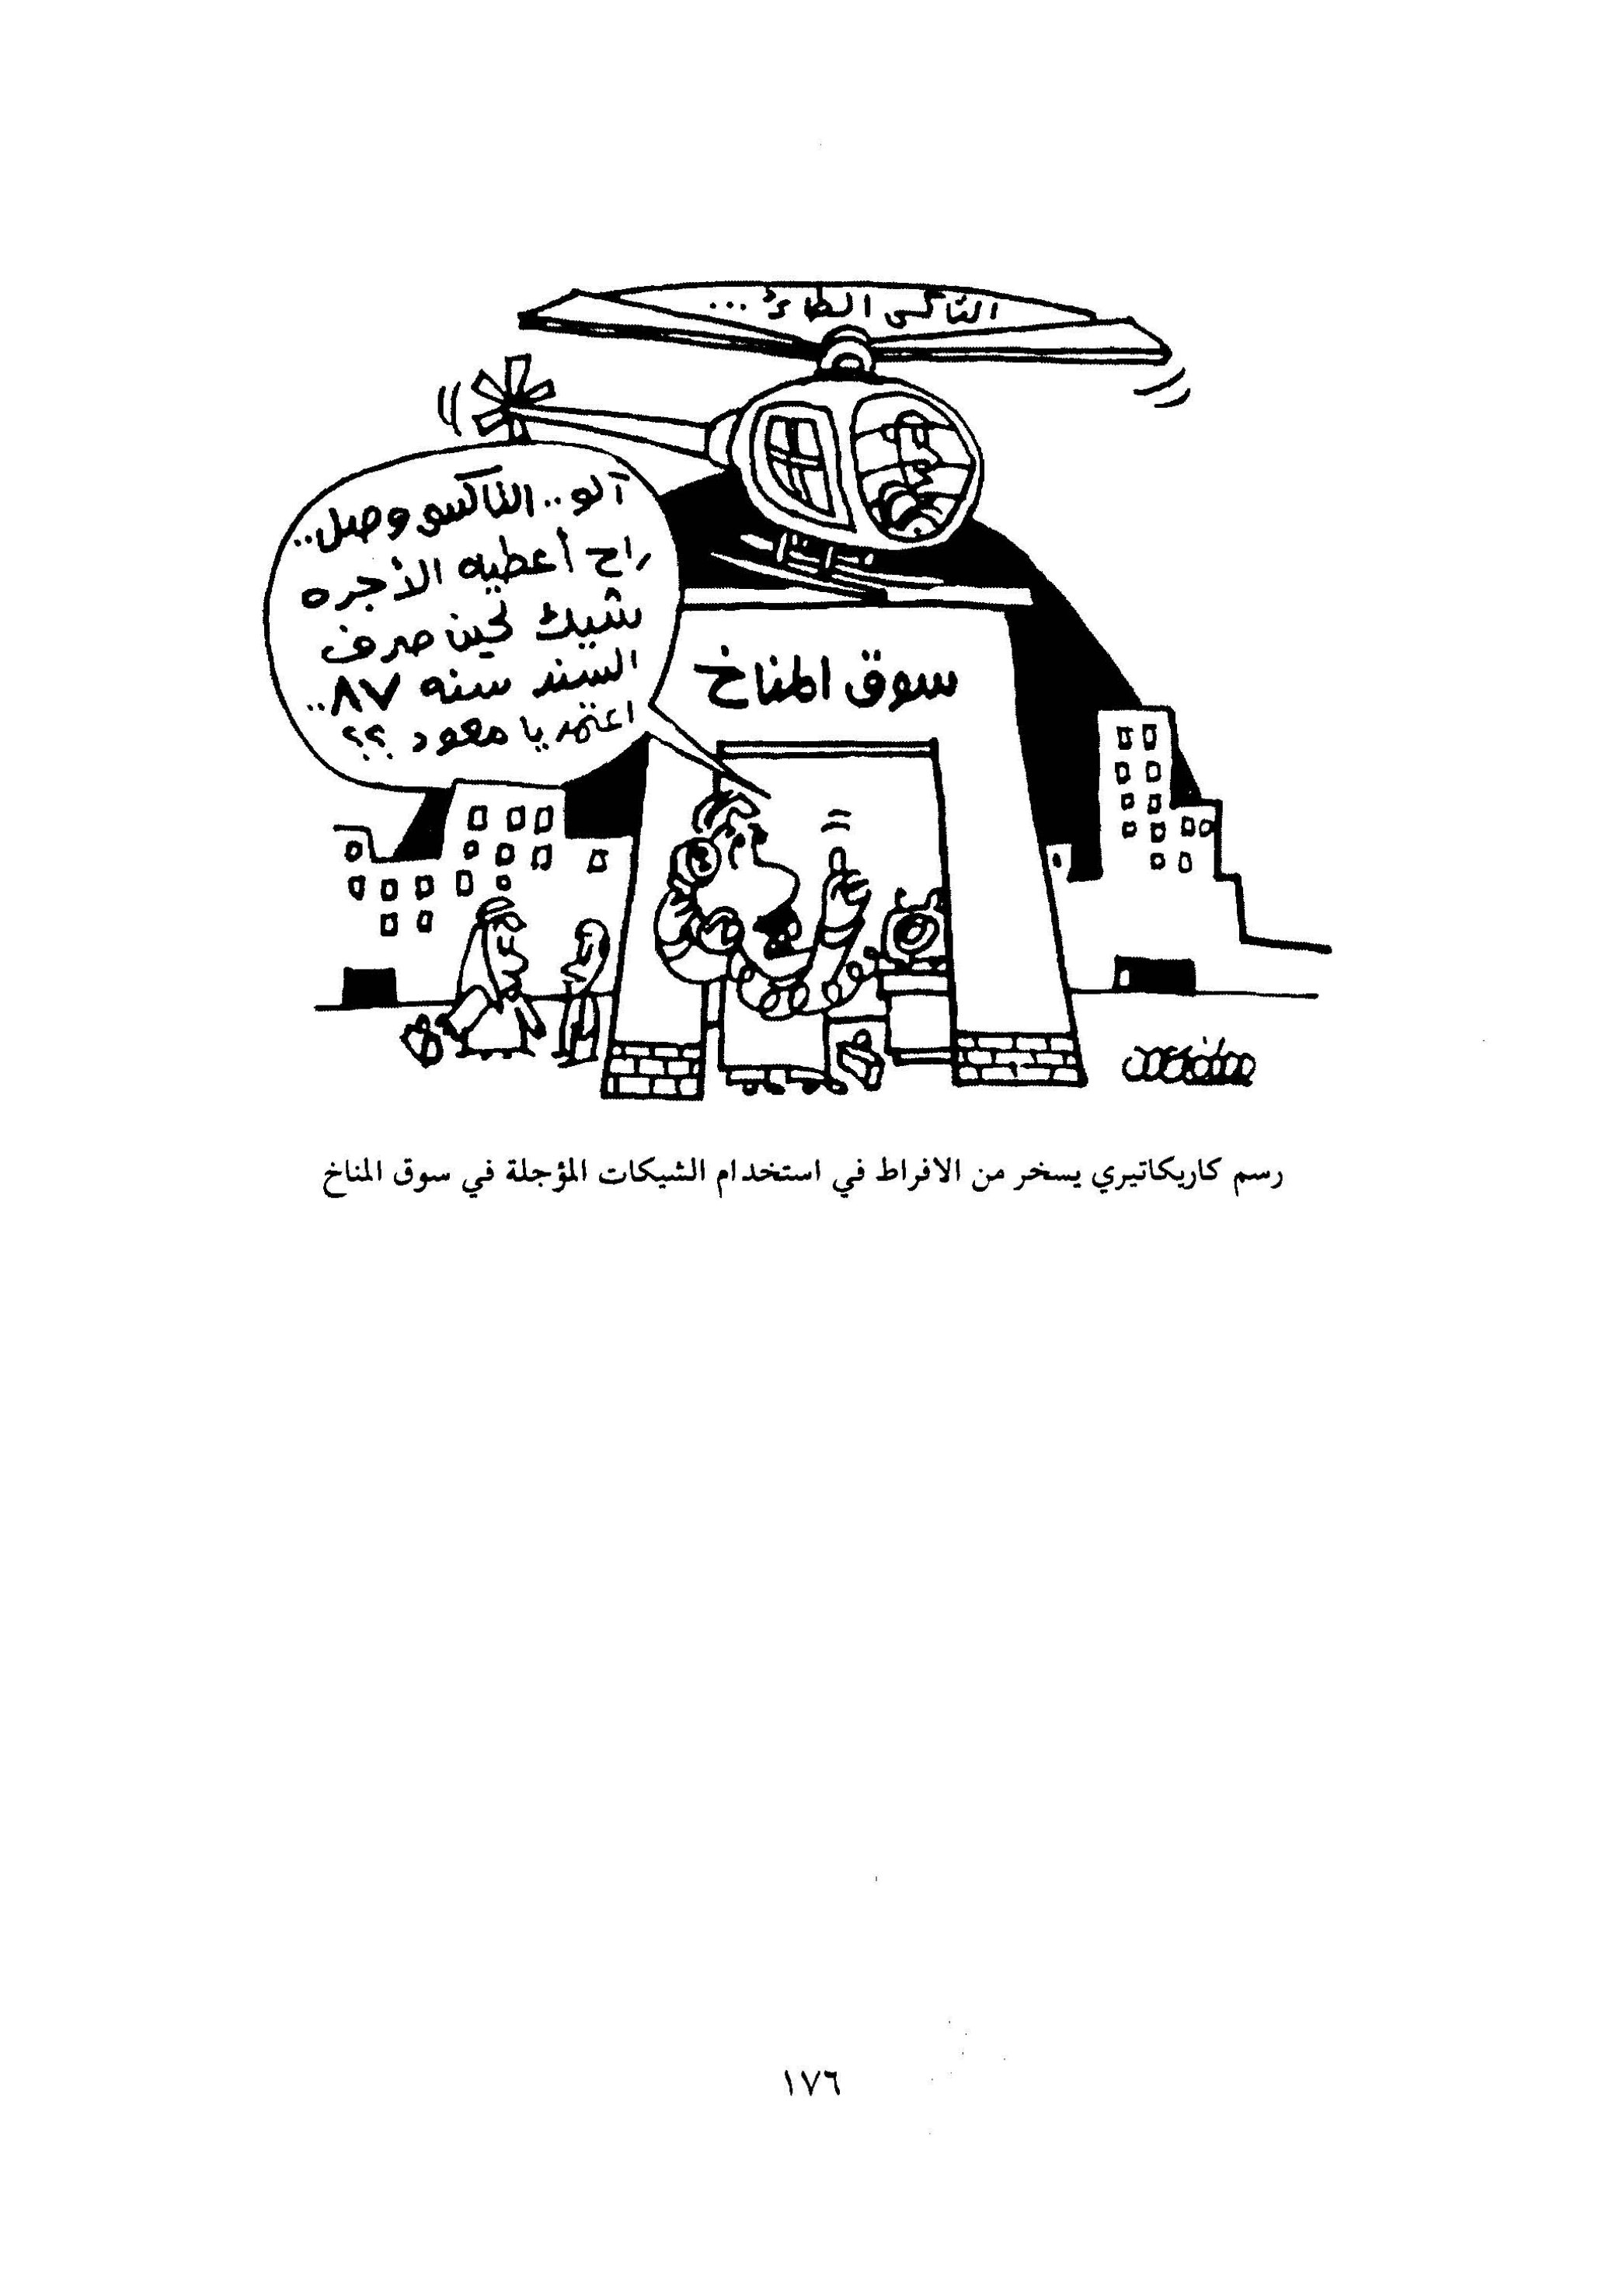 التاكسي الطائر...
آلو.. التاكسي وصل..
راح أعطيه الأجره
شيك لحين صرف
السند سنه ٨٧..
اعتمد يا معود ؟؟
سوق المناخ
رسم كاريكاتيري يسخر من الافراط في استخدام الشيكات المؤجلة في سوق المناخ
١٧٦